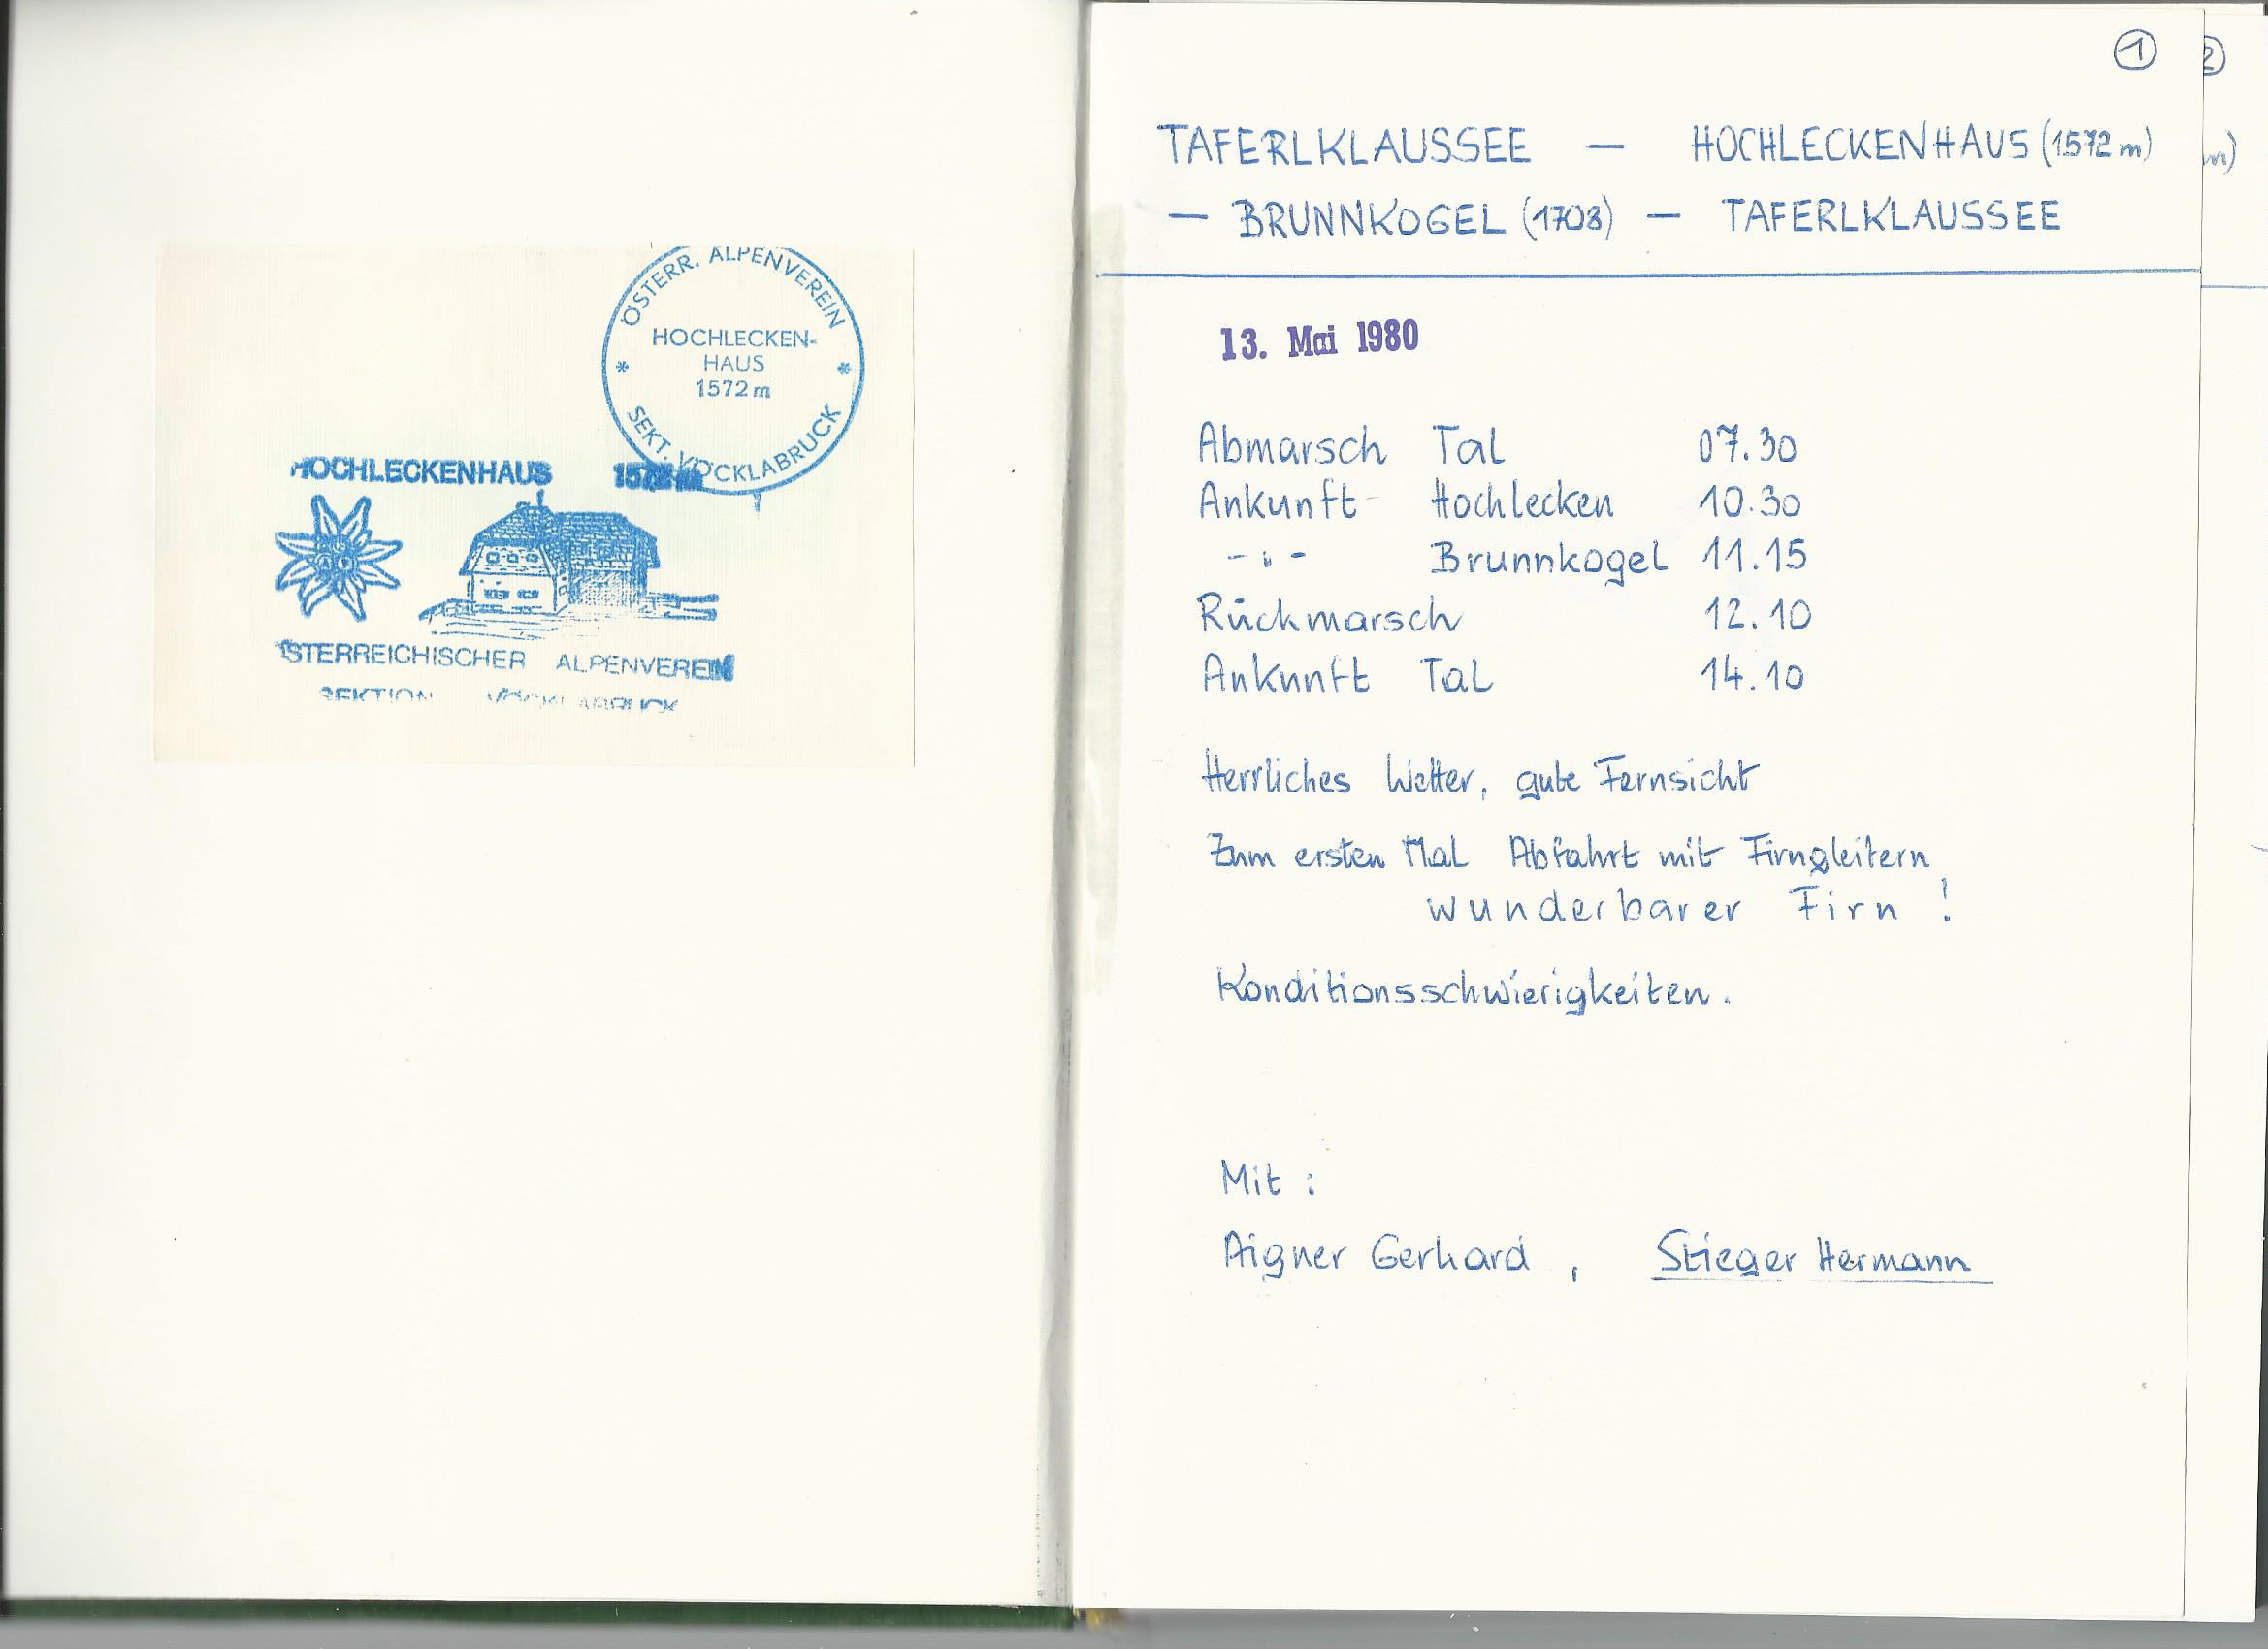 ÖSTERR. ALPENVEREIN
HOCHLECKEN-
HAUS
1572m
SEKT. VÖCKLABRUCK
HOCHLECKENHAUS 1572m
STERREICHISCHER ALPENVEREIN
SEKTION VÖCKLABRUCK
1
2
TAFERLKLAUSSEE — HOCHLECKENHAUS (1572 m)
m)
— BRUNNKOGEL (1708) — TAFERLKLAUSSEE
13. Mai 1980
Abmarsch Tal 07.30
Ankunft Hochlecken 10.30
-"- Brunnkogel 11.15
Rückmarsch 12.10
Ankunft Tal 14.10
Herrliches Wetter, gute Fernsicht
Zum ersten Mal Abfahrt mit Firngleitern
wunderbarer Firn !
Konditionsschwierigkeiten.
Mit :
Aigner Gerhard , Stieger Hermann